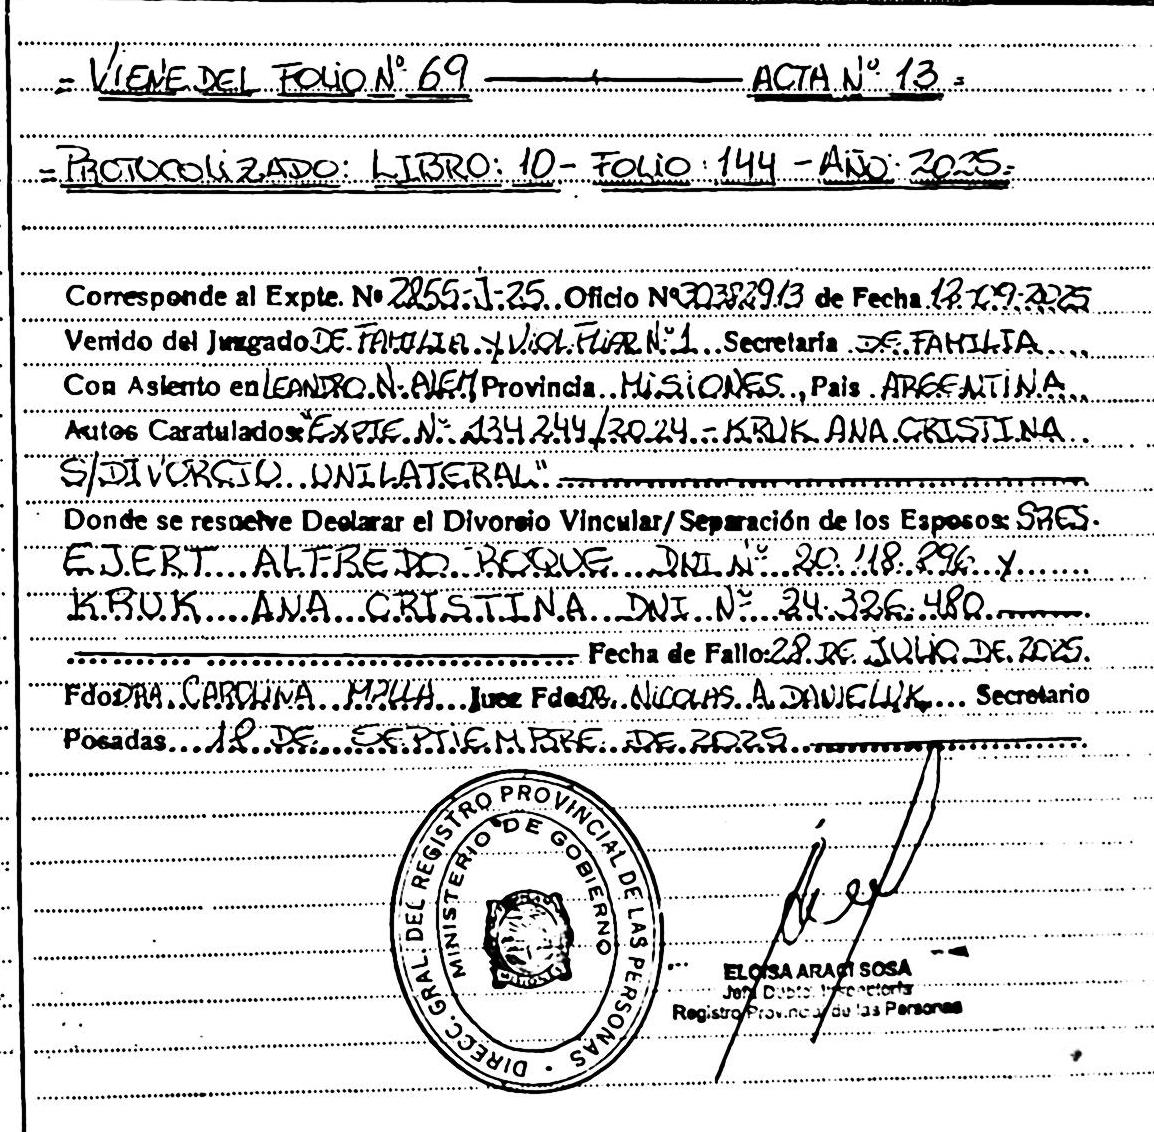 = VIENE DEL FOLIO Nº 69 ——— ACTA Nº 13 =
= PROTOCOLIZADO: LIBRO: 10 - FOLIO: 144 - AÑO: 2025 =
Corresponde al Expte. Nº 2855-J-25 Oficio Nº 30382913 de Fecha 12-09-2025
Venido del Juzgado DE FAMILIA Y VIOL. FLIAR Nº 1 Secretaría DE FAMILIA
Con Asiento en LEANDRO N. ALEM Provincia MISIONES, País ARGENTINA
Autos Caratulados: "EXPTE. Nº 134244/2024 - KRUK ANA CRISTINA
S/DIVORCIO UNILATERAL"
Donde se resuelve Declarar el Divorcio Vincular/Separación de los Esposos: SRES.
EJERT ALFREDO ROQUE DNI Nº 20.118.296 y
KRUK ANA CRISTINA DNI Nº 24.326.480
Fecha de Fallo: 28 DE JULIO DE 2025.
Fdo: DRA. CAROLINA Juez Fdo: DR. NICOLAS A. DANIELUK Secretario
Posadas 18 DE SEPTIEMBRE DE 2025
DIRECC. GRAL. DEL REGISTRO PROVINCIAL DE LAS PERSONAS
MINISTERIO DE GOBIERNO
ELOISA ARACI SOSA
Jefa Dpto. Inspectoría
Registro Provincial de las Personas